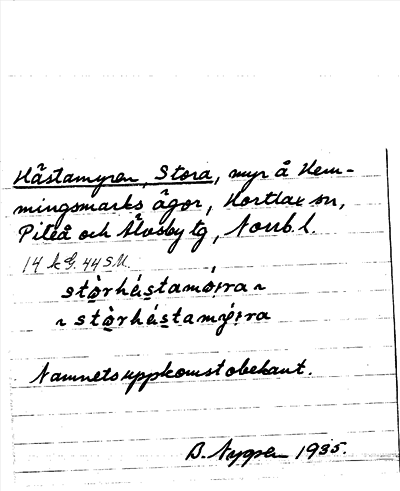 Hästamyren, Stora, myr å Hem-
mingsmarks ägor, Hortlax sn,
Piteå och Älvsby tg, Norrb. l.
14 k G. 44 S.U.
stòrhéstamýrra ~
~ stòrhéstamýrra
Namnets uppkomst obekant.
B. Nygren 1935.